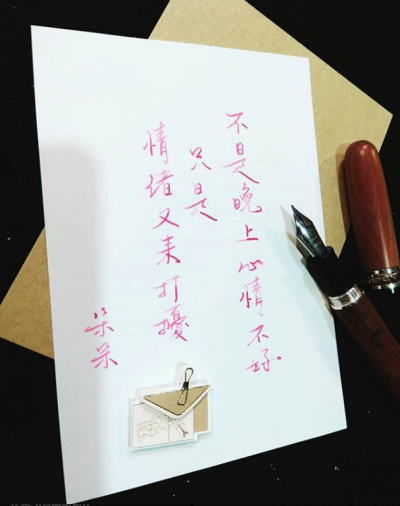 不是晚上心情不好.
只是
情绪又来打擾
朵朵